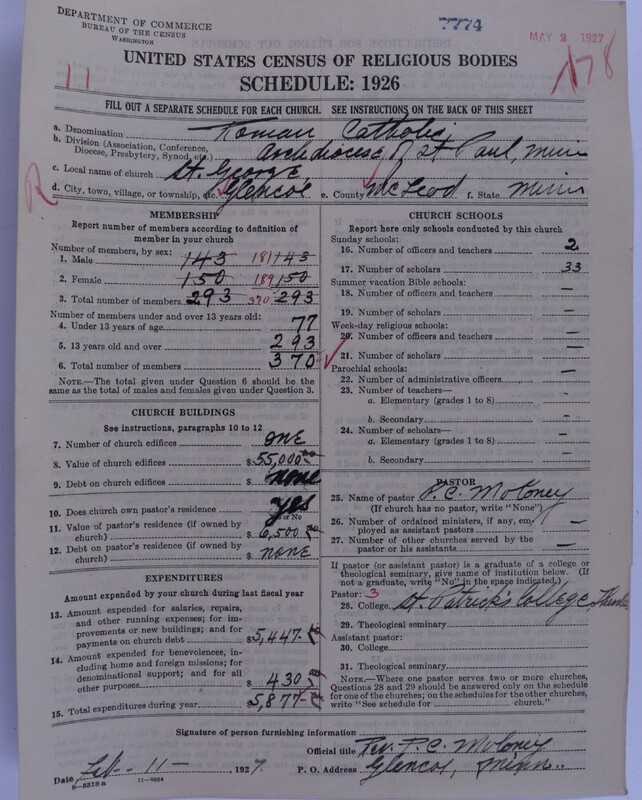 DEPARTMENT OF COMMERCE
BUREAU OF THE CENSUS
WASHINGTON
7774
MAY 2 1927
178
11
UNITED STATES CENSUS OF RELIGIOUS BODIES
SCHEDULE: 1926
FILL OUT A SEPARATE SCHEDULE FOR EACH CHURCH. SEE INSTRUCTIONS ON THE BACK OF THIS SHEET
a. Denomination Roman Catholic
b. Division (Association, Conference, Diocese, Presbytery, Synod, etc.) Archdiocese of St Paul, Minn
c. Local name of church St. George
R
d. City, town, village, or township, etc. Glencoe e. County McLeod f. State Minn
MEMBERSHIP
Report number of members according to definition of member in your church
Number of members, by sex:
1. Male 143 181 143
2. Female 150 189 150
3. Total number of members 293 370 293
Number of members under and over 13 years old:
4. Under 13 years of age 77
5. 13 years old and over 293
6. Total number of members 370
NOTE.—The total given under Question 6 should be the same as the total of males and females given under Question 3.
CHURCH BUILDINGS
See instructions, paragraphs 10 to 12
7. Number of church edifices one
8. Value of church edifices $55,000.00
9. Debt on church edifices $ none
10. Does church own pastor's residence? yes
Yes or No
11. Value of pastor's residence (if owned by church) $6,500.00
12. Debt on pastor's residence (if owned by church) $ none
EXPENDITURES
Amount expended by your church during last fiscal year
13. Amount expended for salaries, repairs, and other running expenses; for improvements or new buildings; and for payments on church debt $5,447
14. Amount expended for benevolences, including home and foreign missions; for denominational support; and for all other purposes $430
15. Total expenditures during year 5,877
CHURCH SCHOOLS
Report here only schools conducted by this church
Sunday schools:
16. Number of officers and teachers 2
17. Number of scholars 33
Summer vacation Bible schools:
18. Number of officers and teachers —
19. Number of scholars —
Week-day religious schools:
20. Number of officers and teachers —
21. Number of scholars —
Parochial schools:
22. Number of administrative officers —
23. Number of teachers—
a. Elementary (grades 1 to 8) —
b. Secondary —
24. Number of scholars—
a. Elementary (grades 1 to 8) —
b. Secondary —
PASTOR
25. Name of pastor P. C. Moloney
(If church has no pastor, write "None")
26. Number of ordained ministers, if any, employed as assistant pastors —
27. Number of other churches served by the pastor or his assistants —
If pastor (or assistant pastor) is a graduate of a college or theological seminary, give name of institution below. (If not a graduate, write "No" in the space indicated.)
Pastor: 3
28. College St. Patrick's College
29. Theological seminary
Assistant pastor:
30. College
31. Theological seminary
NOTE.—Where one pastor serves two or more churches, Questions 28 and 29 should be answered only on the schedule for one of the churches; on the schedules for the other churches, write "See schedule for church."
Signature of person furnishing information
Official title Rev. P. C. Moloney
Date Feb - 11 - 1927. P. O. Address Glencoe, Minn.
8-5518a 11-9024